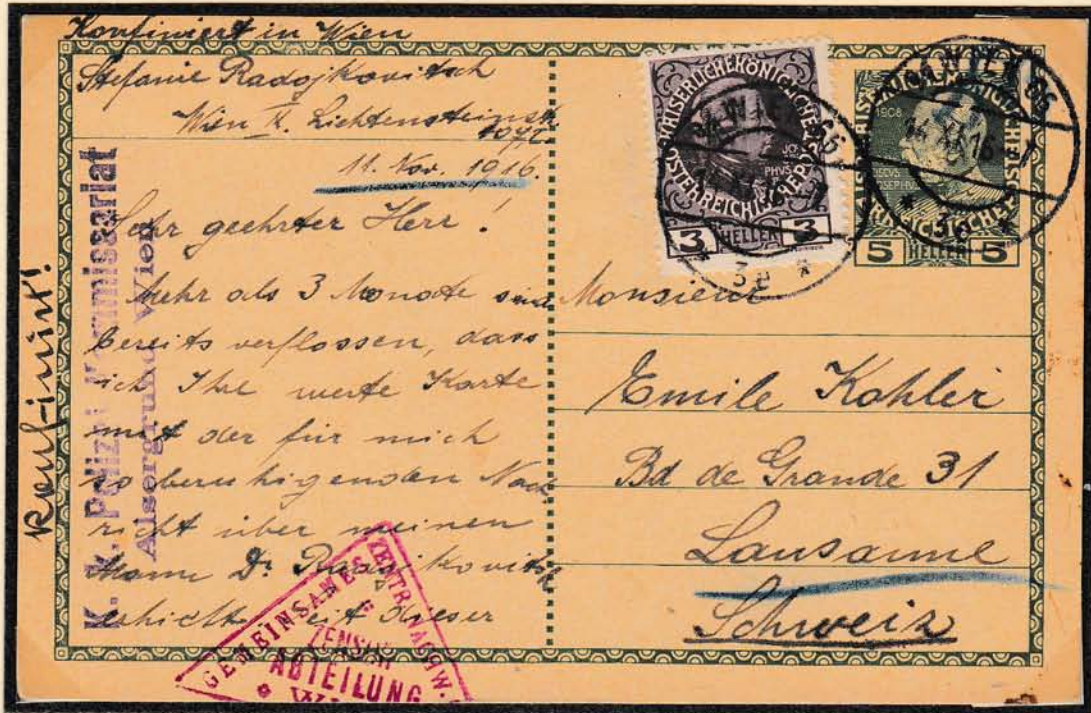 Konfiniert in Wien
Stefanie Radojkovitsch
Wien IX. Lichtensteinst.
11. Nov. 1916.
Sehr geehrter Herr!
Mehr als 3 Monate sind
bereits verflossen, dass
ich Ihre werte Karte
mit der für mich
so beruhigenden Nach
richt über meinen
Mann Dr. Radojkovitsch
Seit dieser
konfiniert!
K. k. Polizei-Kommissariat
Alsergrund Wien
GEMEINSAMES ZENTRALNACHW.
ZENSUR
ABTEILUNG
KAISERLICHE KÖNIGLICHE
ÖSTERREICHISCHE POST
3 HELLER 3
WIEN 66
3e
1908
5 HELLER 5
WIEN 66
3e
Monsieur
Emile Kohler
Bd de Grande 31
Lausanne
Schweiz